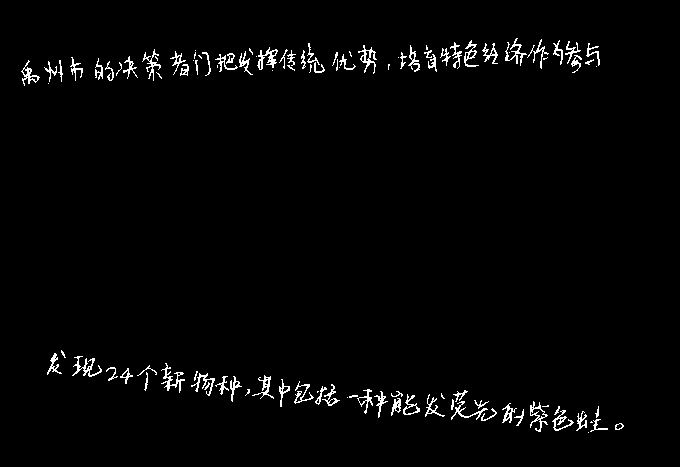 禹州市的决策者们把发挥传统优势,培育特色经济作为参与
发现24个新物种,其中包括一种能发荧光的紫色蛙。